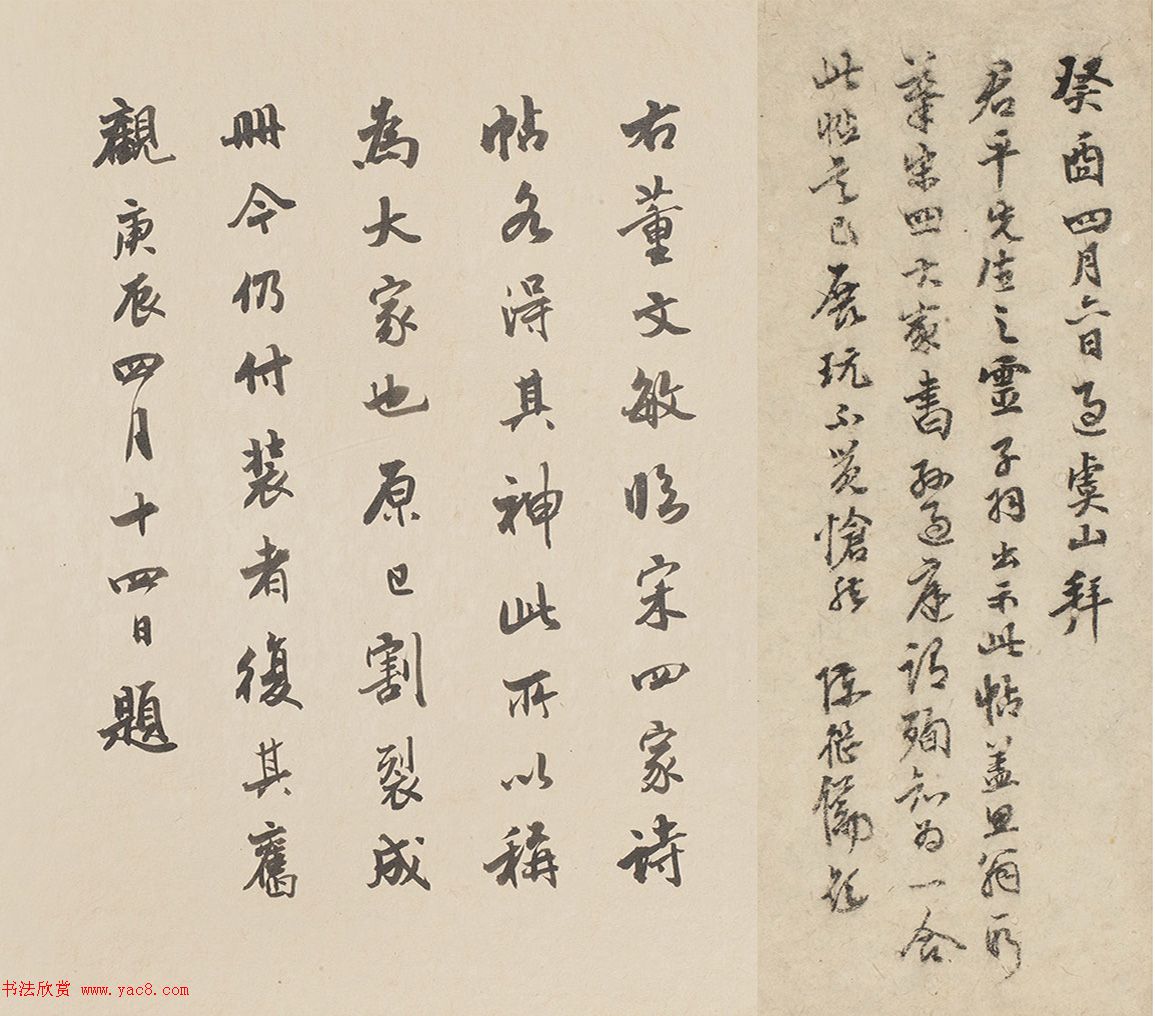 癸酉四月六日過虞山拜
君平先生之靈子羽出示此帖蓋思翁所
摹宋四大家書孫過庭謂殉知為一合
此帖是已展玩不覺愴然 陳繼儒題
右董文敏臨宋四家詩
帖各得其神此所以稱
為大家也原已割裂成
冊今仍付裝者復其舊
觀庚辰四月十四日題
书法欣赏 www.yac8.com